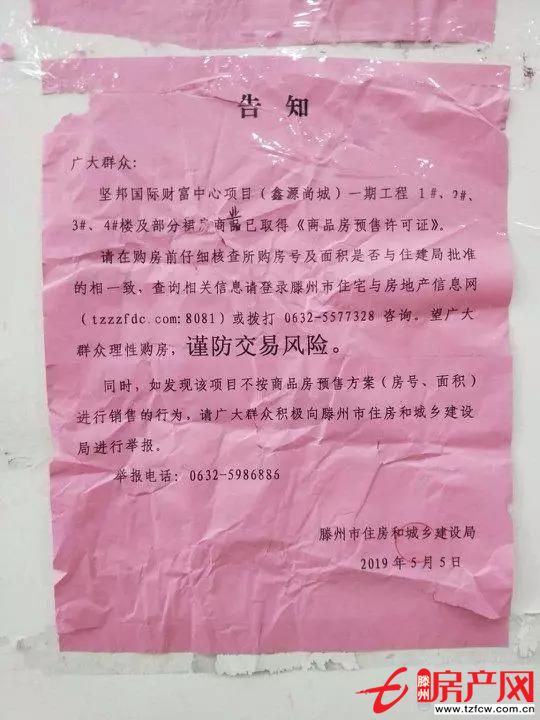 告 知
广大群众：
坚邦国际财富中心项目（鑫源尚城）一期工程 1#、2#、
3#、4#楼及部分裙房商业已取得《商品房预售许可证》。
请在购房前仔细核查所购房号及面积是否与住建局批准
的相一致、查询相关信息请登录滕州市住宅与房地产信息网
（tzzzfdc.com:8081）或拨打 0632-5577328 咨询。望广大
群众理性购房，谨防交易风险。
同时，如发现该项目不按商品房预售方案（房号、面积）
进行销售的行为，请广大群众积极向滕州市住房和城乡建设
局进行举报。
举报电话：0632-5986886
滕州市住房和城乡建设局
2019 年 5 月 5 日
滕州房产网
www.tzfcw.com.cn